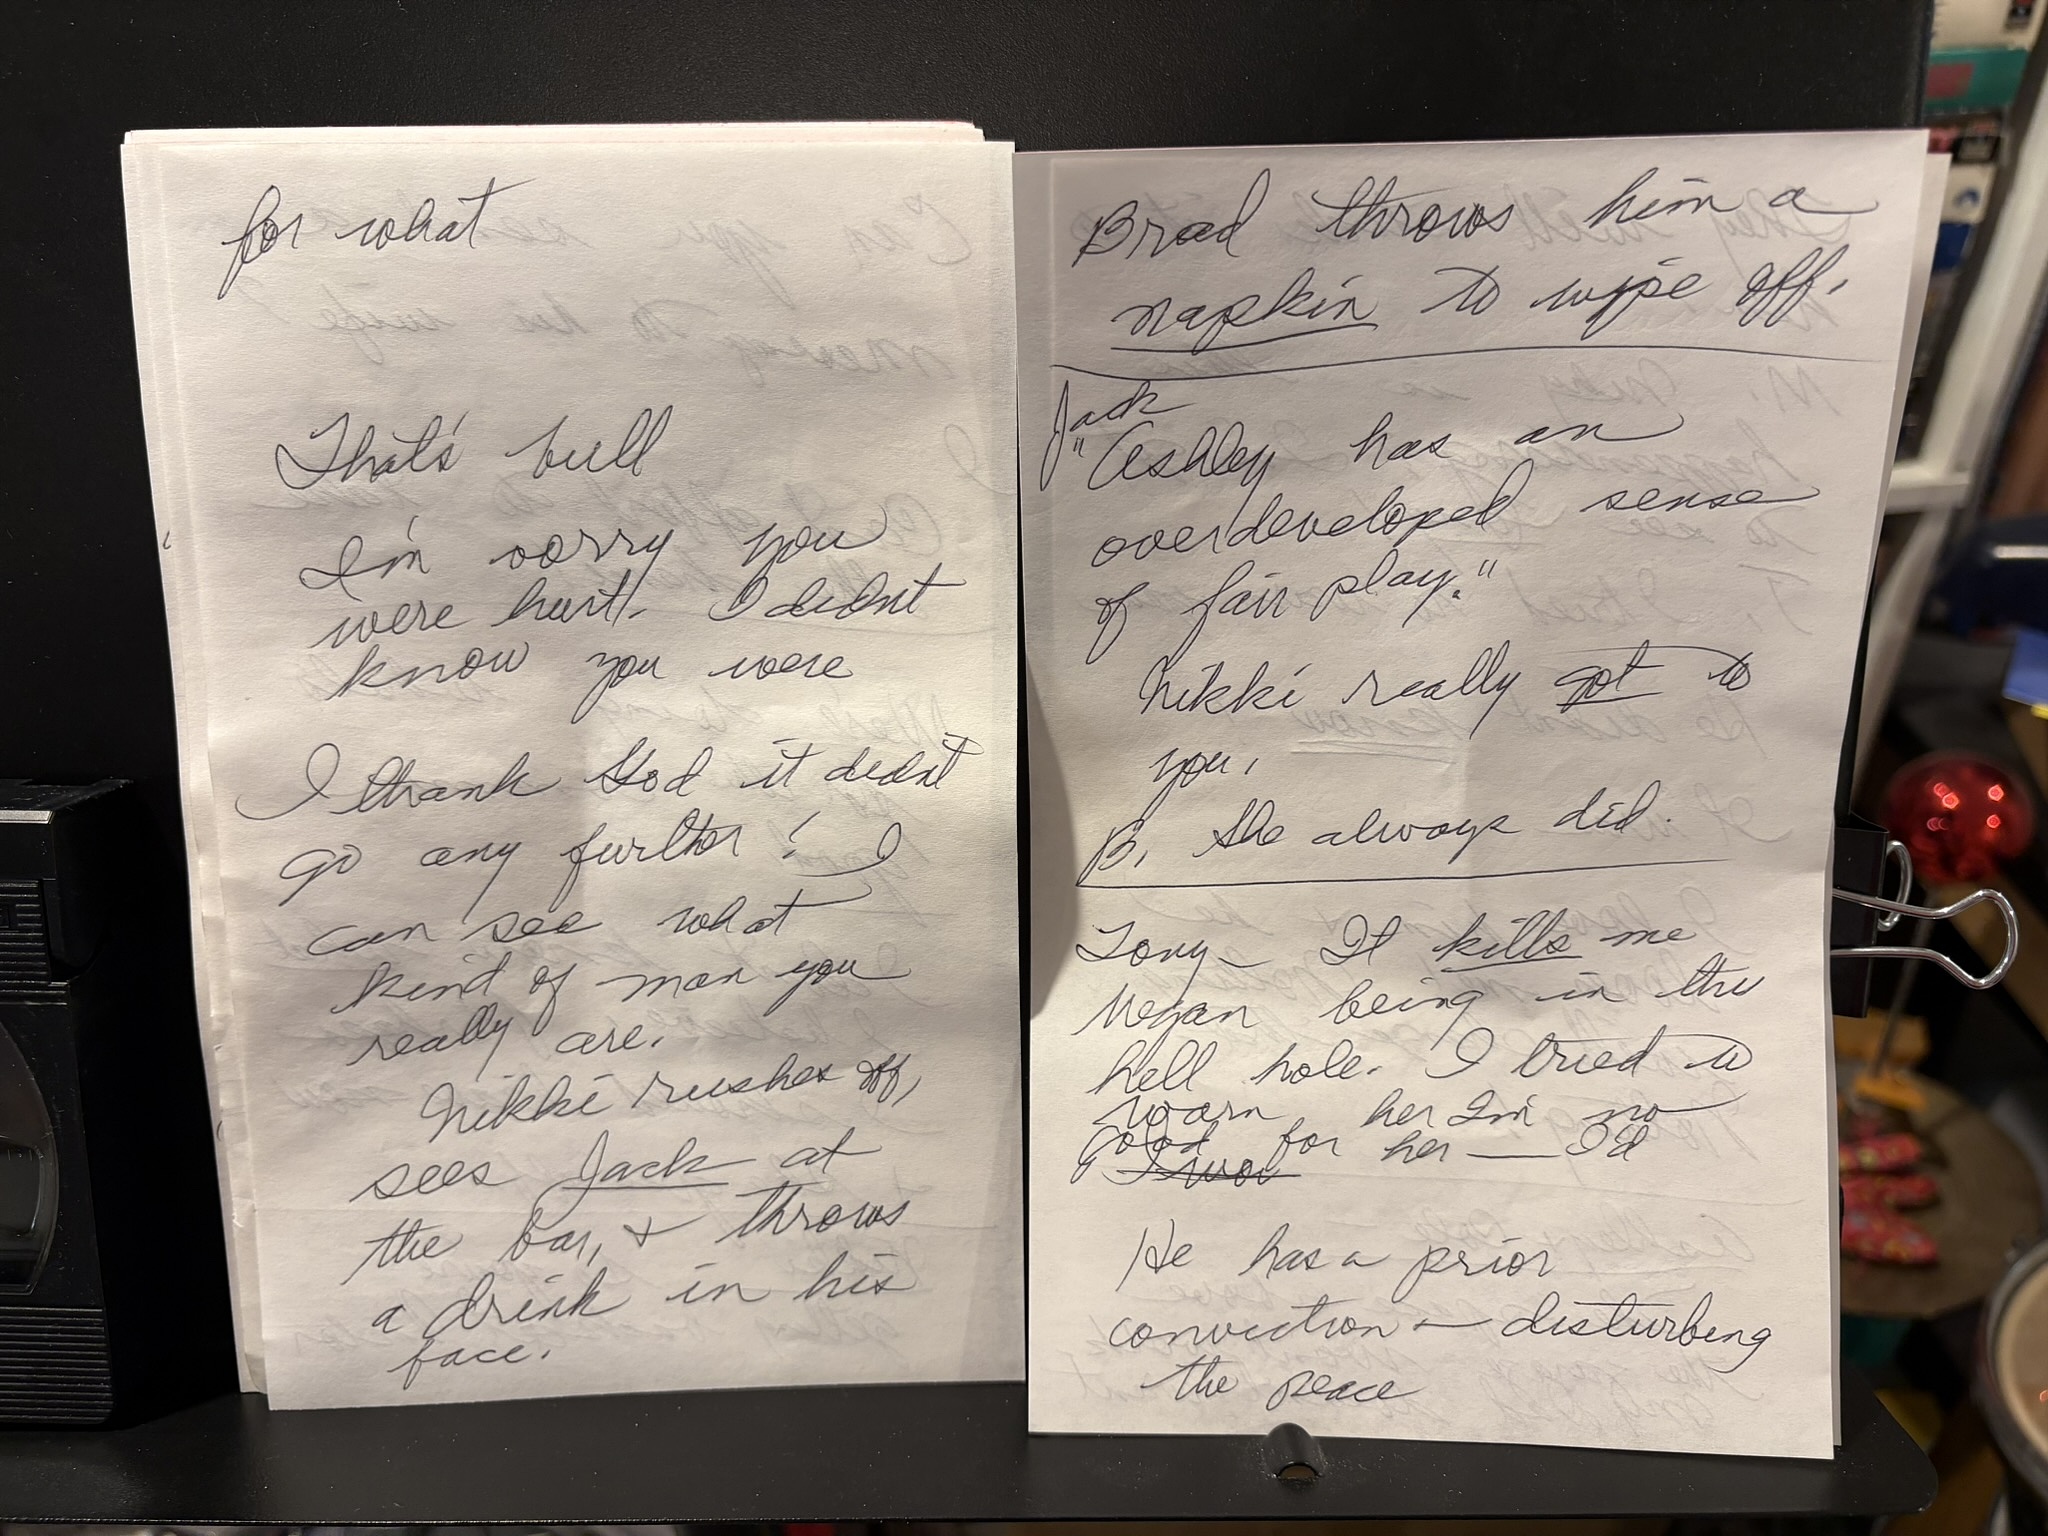 for what
That's bull
I'm sorry you
were hurt. I didnt
know you were
I thank God it didnt
go any further! I
can see what
kind of man you
really are.
Nikki rushes off,
sees Jack at
the bar, & throws
a drink in his
face.
Brad throws him a
napkin to wipe off.
Jack
"Ashley has an
overdeveloped sense
of fair play."
Nikki really got to
you.
B. She always did.
Tony - It kills me
Megan being in this
hell hole. I tried to
warn her I'm no
good for her — I'd
He has a prior
conviction — disturbing
the peace